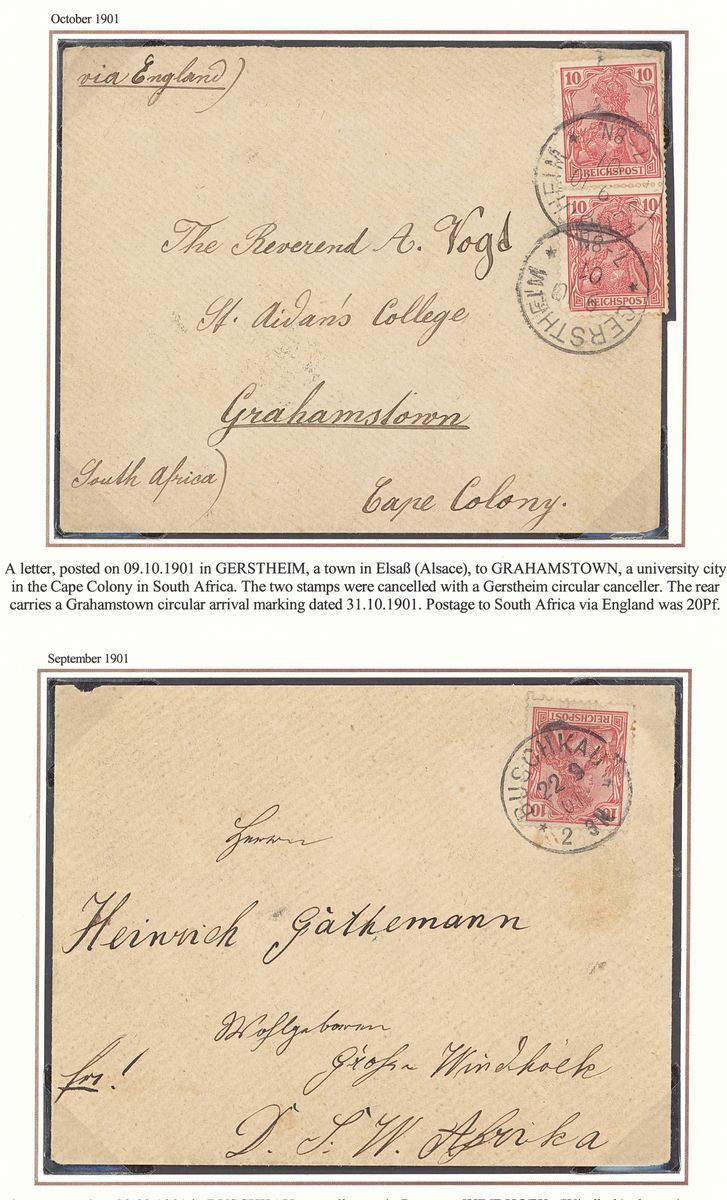 October 1901
via England)
10 10
REICHSPOST
10 10
REICHSPOST
GERSTHEIM
The Reverend A. Vogt
St. Aidan's College
Grahamstown
South Africa)
Cape Colony.
A letter, posted on 09.10.1901 in GERSTHEIM, a town in Elsaß (Alsace), to GRAHAMSTOWN, a university city
in the Cape Colony in South Africa. The two stamps were cancelled with a Gerstheim circular canceller. The rear
carries a Grahamstown circular arrival marking dated 31.10.1901. Postage to South Africa via England was 20Pf.
September 1901
REICHSPOST
10 10
BUSCHKAU
22 9
01
* 2
Herrn
Heinrich Gathemann
Wohlgeboren
Große Windhoek
frs!
D. S. W. Afrika